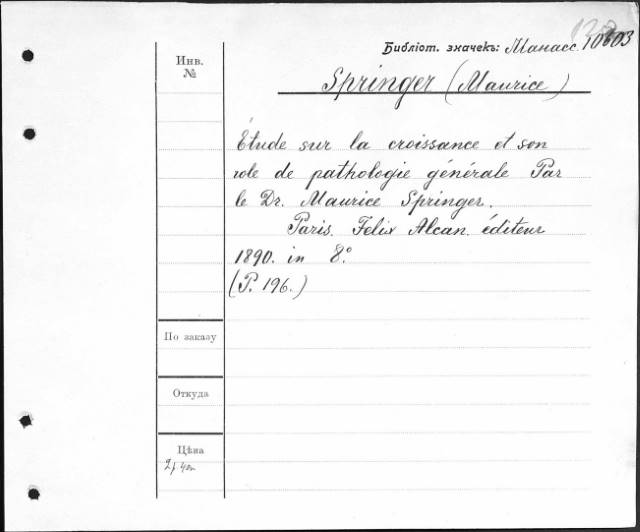 Библіот. значекъ: Манасс. 10603
Инв.
№
Springer (Maurice)
Étude sur la croissance et son
role de pathologie générale Par
le Dr. Maurice Springer.
Paris. Felix Alcan. éditeur
1890. in 8.º
(P. 196.)
По заказу
Откуда
Цѣна